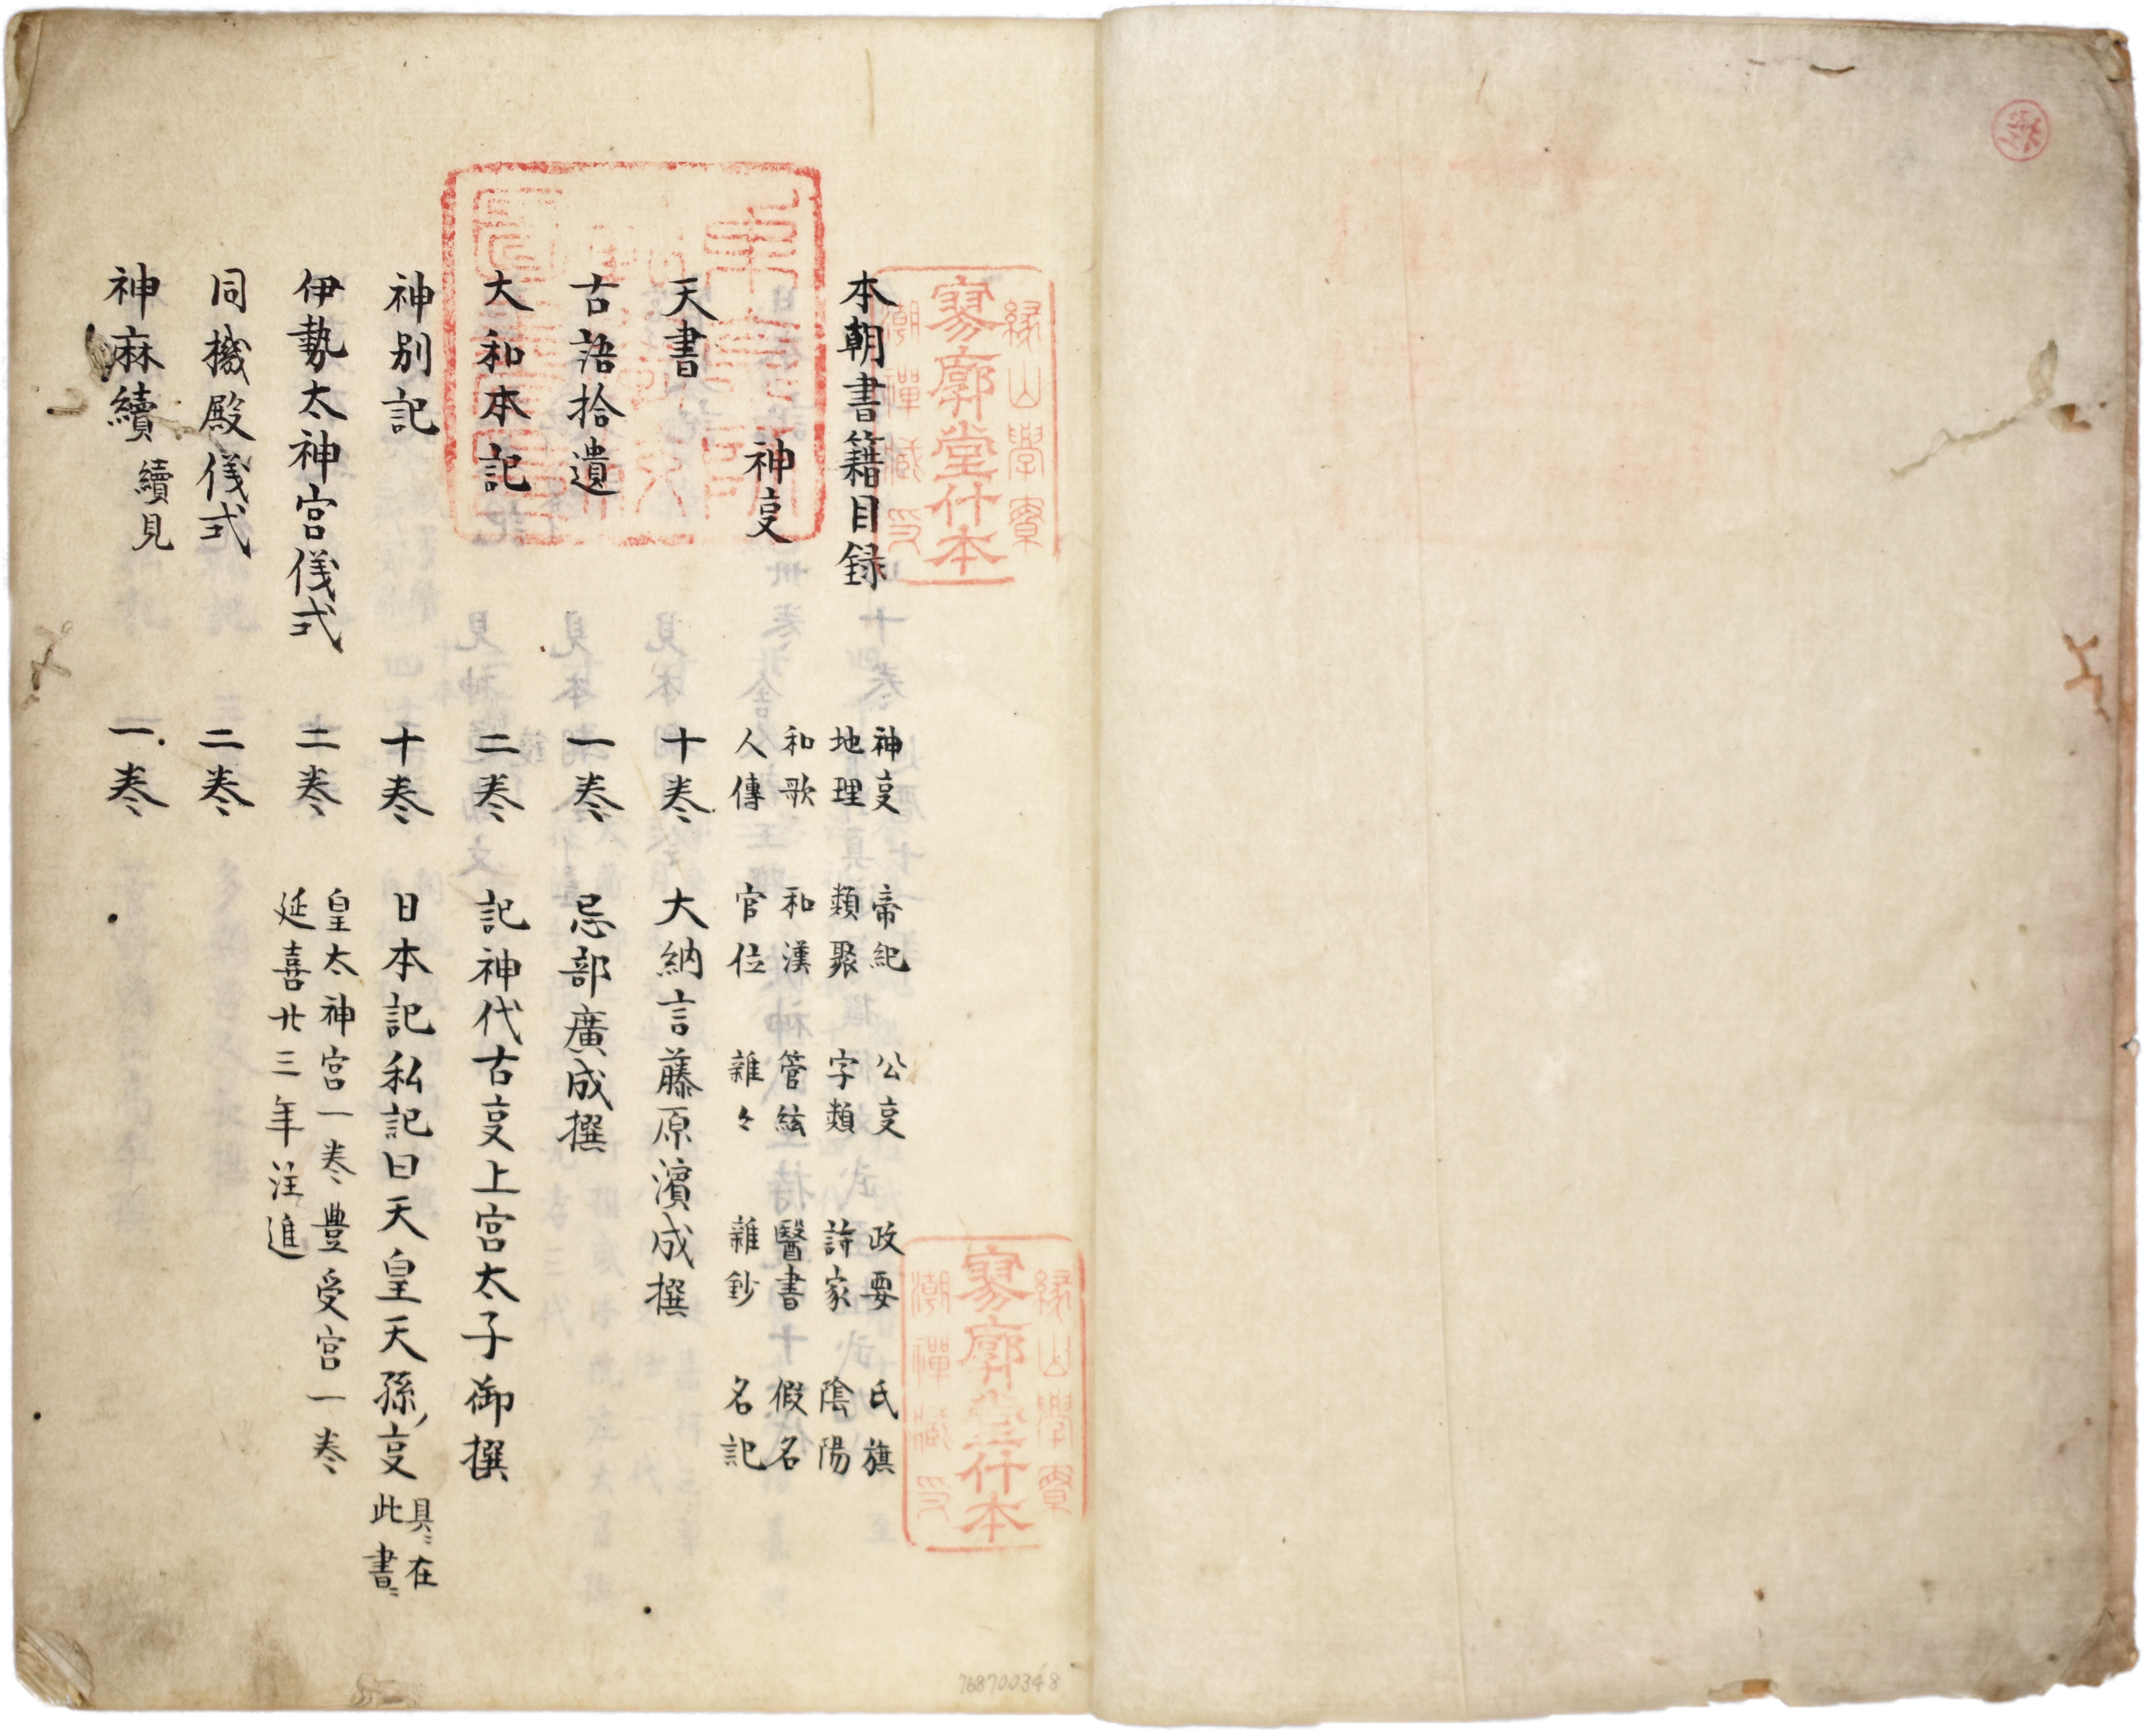 本朝書籍目録
神㕝 帝紀 公㕝 政要 氏族
地理 類聚 字類 詩家 陰陽
和歌 和漢 管絃 醫書 假名
人傳 官位 雜々 雜鈔 名記
神㕝
天書 十巻 大納言藤原濱成撰
古語拾遺 一巻 忌部廣成撰
大和本記 二巻 記神代古㕝上宮太子御撰
神別記 十巻 日本記私記曰天皇天孫㕝
具在
此書
伊勢太神宮儀式 二巻
皇太神宮一巻豊受宮一巻
延喜廿三年注進
同機殿儀式 二巻
神麻續 續見 一巻
縁山學寮
寥廓堂什本
潮禅蔵
縁山學寮
寥廓堂什本
潮禅蔵
768700348